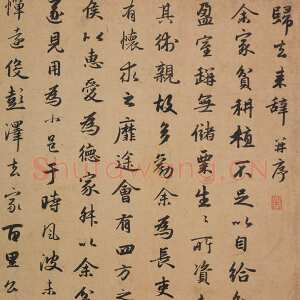 歸去來辭并序
余家貧耕植不足以自給
盈室缾無儲粟生〻所資
其術親故多勸余為長吏
有懷求之靡途會有四方之
侯以惠愛為德家叔以余
遂見用為小邑于時風波未
憚遠役彭澤去家百里公